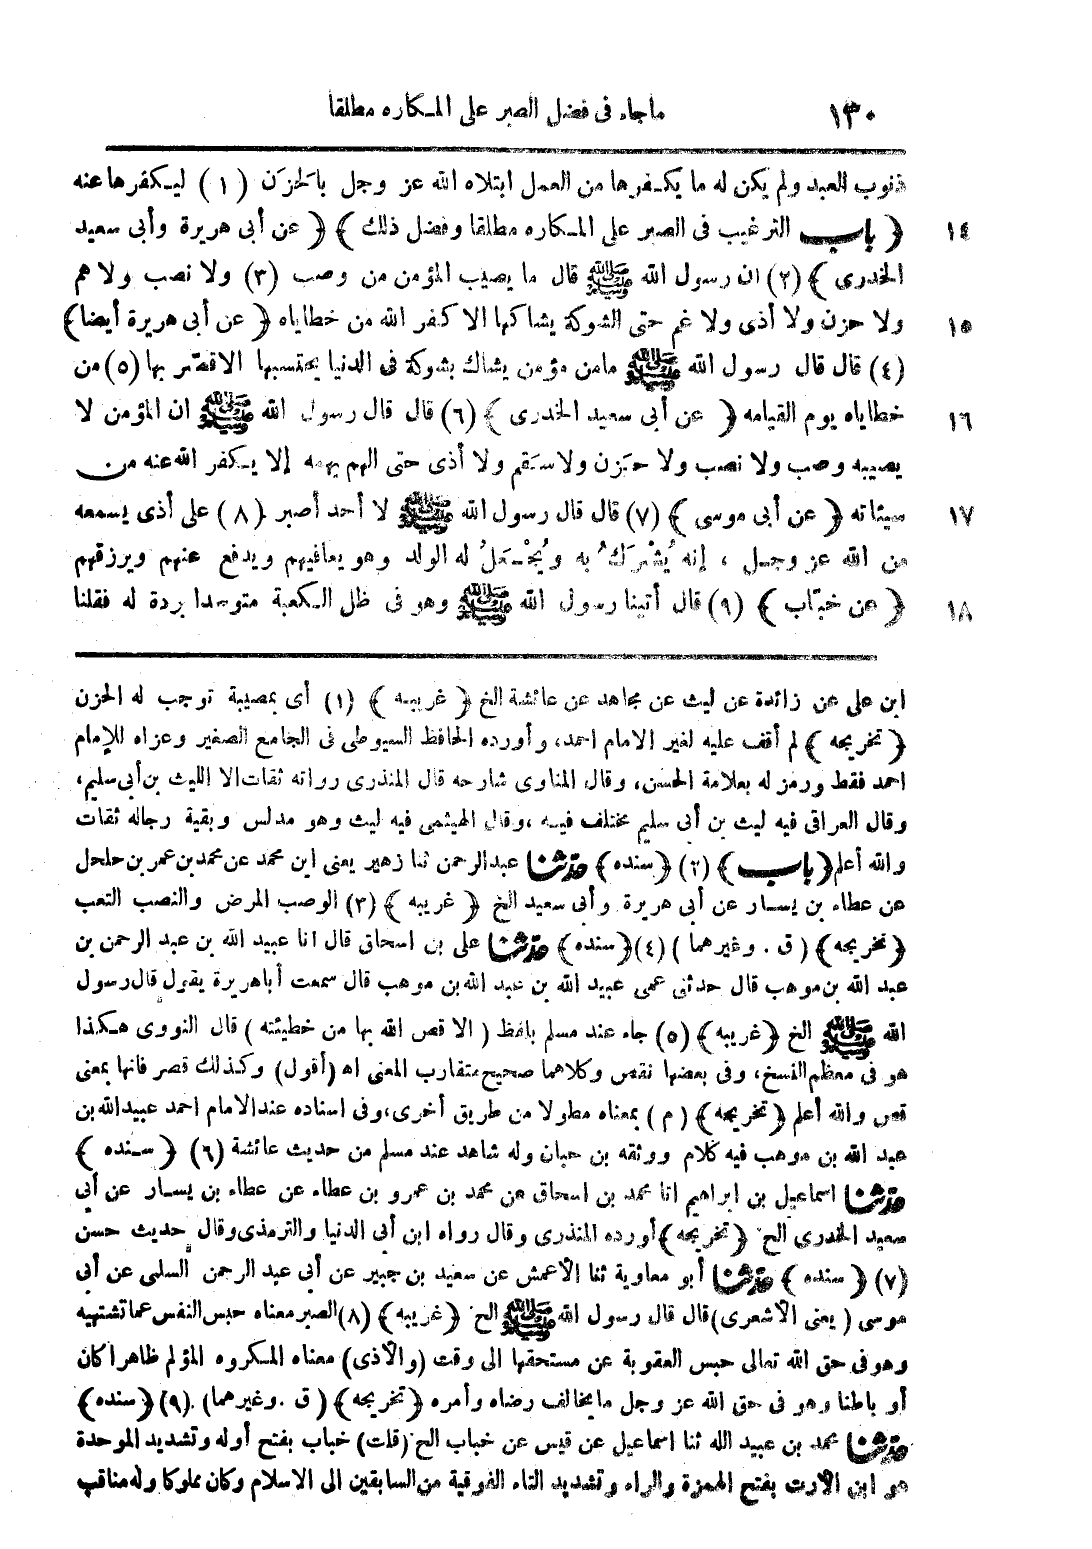 ١٣٠ ماجاء فى فضل الصبر على المكاره مطلقا
ذنوب العبد ولم يكن له ما يكفرها من العمل ابتلاه الله عز وجل بالحَزَن (١) ليكفرها عنه
١٤ ﴿ باب الترغيب فى الصبر على المكاره مطلقا وفضل ذلك ﴾ ﴿ عن أبى هريرة وأبى سعيد
الخدرى ﴾ (٢) ان رسول الله ﷺ قال ما يصيب المؤمن من وصب (٣) ولا نصب ولا هم
١٥ ولا حزن ولا أذى ولا غم حتى الشوكة يشاكها الا كفر الله من خطاياه ﴿ عن أبى هريرة أيضا ﴾
(٤) قال قال رسول الله ﷺ مامن مؤمن يشاك بشوكة فى الدنيا يحتسبها الا قصّر بها (٥) من
١٦ خطاياه يوم القيامه ﴿ عن أبى سعيد الخدرى ﴾ (٦) قال قال رسول الله ﷺ ان المؤمن لا
يصيبه وصب ولا نصب ولا حزَن ولا سقم ولا أذى حتى الهم يهمه إلا يكفر الله عنه من
١٧ سيئاته ﴿ عن أبى موسى ﴾ (٧) قال قال رسول الله ﷺ لا أحد أصبر (٨) على أذى يسمعه
من الله عز وجل ، إنه يُشْرَكُ به ويُجْعَلُ له الولد وهو يعافيهم ويدفع عنهم ويرزقهم
١٨ ﴿ عن خبّاب ﴾ (٩) قال أتينا رسول الله ﷺ وهو فى ظل الكعبة متوسدا بردة له فقلنا
ابن على عن زائدة عن ليث عن مجاهد عن عائشة الخ ﴿ غريبه ﴾ (١) أى بمصيبة توجب له الحزن
﴿ تخريجه ﴾ لم أقف عليه لغير الامام احمد، وأورده الحافظ السيوطى فى الجامع الصغير وعزاه للإمام
احمد فقط ورمز له بعلامة الحسن، وقال المناوى شارحه قال المنذرى رواته ثقات الا الليث بن أبى سليم،
وقال العراقى فيه ليث بن أبى سليم مختلف فيه ،وقال الهيثمى فيه ليث وهو مدلس وبقية رجاله ثقات
والله أعلم ﴿ باب ﴾ (٢) ﴿ سنده ﴾ حدثنا عبدالرحمن ثنا زهير يعنى ابن محمد عن محمد بن عمر بن حلحل
عن عطاء بن يسار عن أبى هريرة وأبى سعيد الخ ﴿ غريبه ﴾ (٣) الوصب المرض والنصب التعب
﴿ تخريجه ﴾ (ق . وغيرهما ) (٤) ﴿ سنده ﴾ حدثنا على بن اسحاق قال انا عبيد الله بن عبد الرحمن بن
عبد الله بن موهب قال حدثنى عمى عبيد الله بن عبد الله بن موهب قال سمعت أباهريرة يقول قال رسول
الله ﷺ الخ ﴿ غريبه ﴾ (٥) جاء عند مسلم بلفظ ( الا قص الله بها من خطيئته ) قال النووى هكذا
هو فى معظم النسخ، وفى بعضها نقص وكلاهما صحيح متقارب المعنى اه (أقول) وكذلك قصر فانها بمعنى
قص والله أعلم ﴿ تخريجه ﴾ ( م ) بمعناه مطولا من طريق أخرى،وفى اسناده عندالامام احمد عبيدالله بن
عبد الله بن موهب فيه كلام ووثقه بن حبان وله شاهد عند مسلم من حديث عائشة (٦) ﴿ سنده ﴾
حدثنا اسماعيل بن ابراهيم انا محمد بن اسحاق عن محمد بن عمرو بن عطاء عن عطاء بن يسار عن أبي
سعيد الخدرى الخ ﴿ تخريجه ﴾ أورده المنذرى وقال رواه ابن أبى الدنيا والترمذى وقال حديث حسن
(٧) ﴿ سنده ﴾ حدثنا أبو معاوية ثنا الأعمش عن سعيد بن جبير عن أبى عبد الرحمن السلمى عن أبى
موسى ( يعنى الأشعرى) قال قال رسول الله ﷺ الخ ﴿ غريبه ﴾ (٨) الصبر معناه حبس النفس عما تشتهيه
وهو فى حق الله تعالى حبس العقوبة عن مستحقها الى وقت (والأذى) معناه المكروه المؤلم ظاهرا كان
أو باطنا وهو فى حق الله عز وجل ما يخالف رضاه وأمره ﴿ تخريجه ﴾ ( ق . وغيرهما) . (٩) ﴿ سنده ﴾
حدثنا محمد بن عبيد الله ثنا اسماعيل عن قيس عن خباب الخ (قلت) خباب بفتح أوله وتشديد الموحدة
هو ابن الأرت بفتح الهمزة والراء وتشديد التاء الفوقية من السابقين الى الاسلام وكان مملوكا وله مناقب